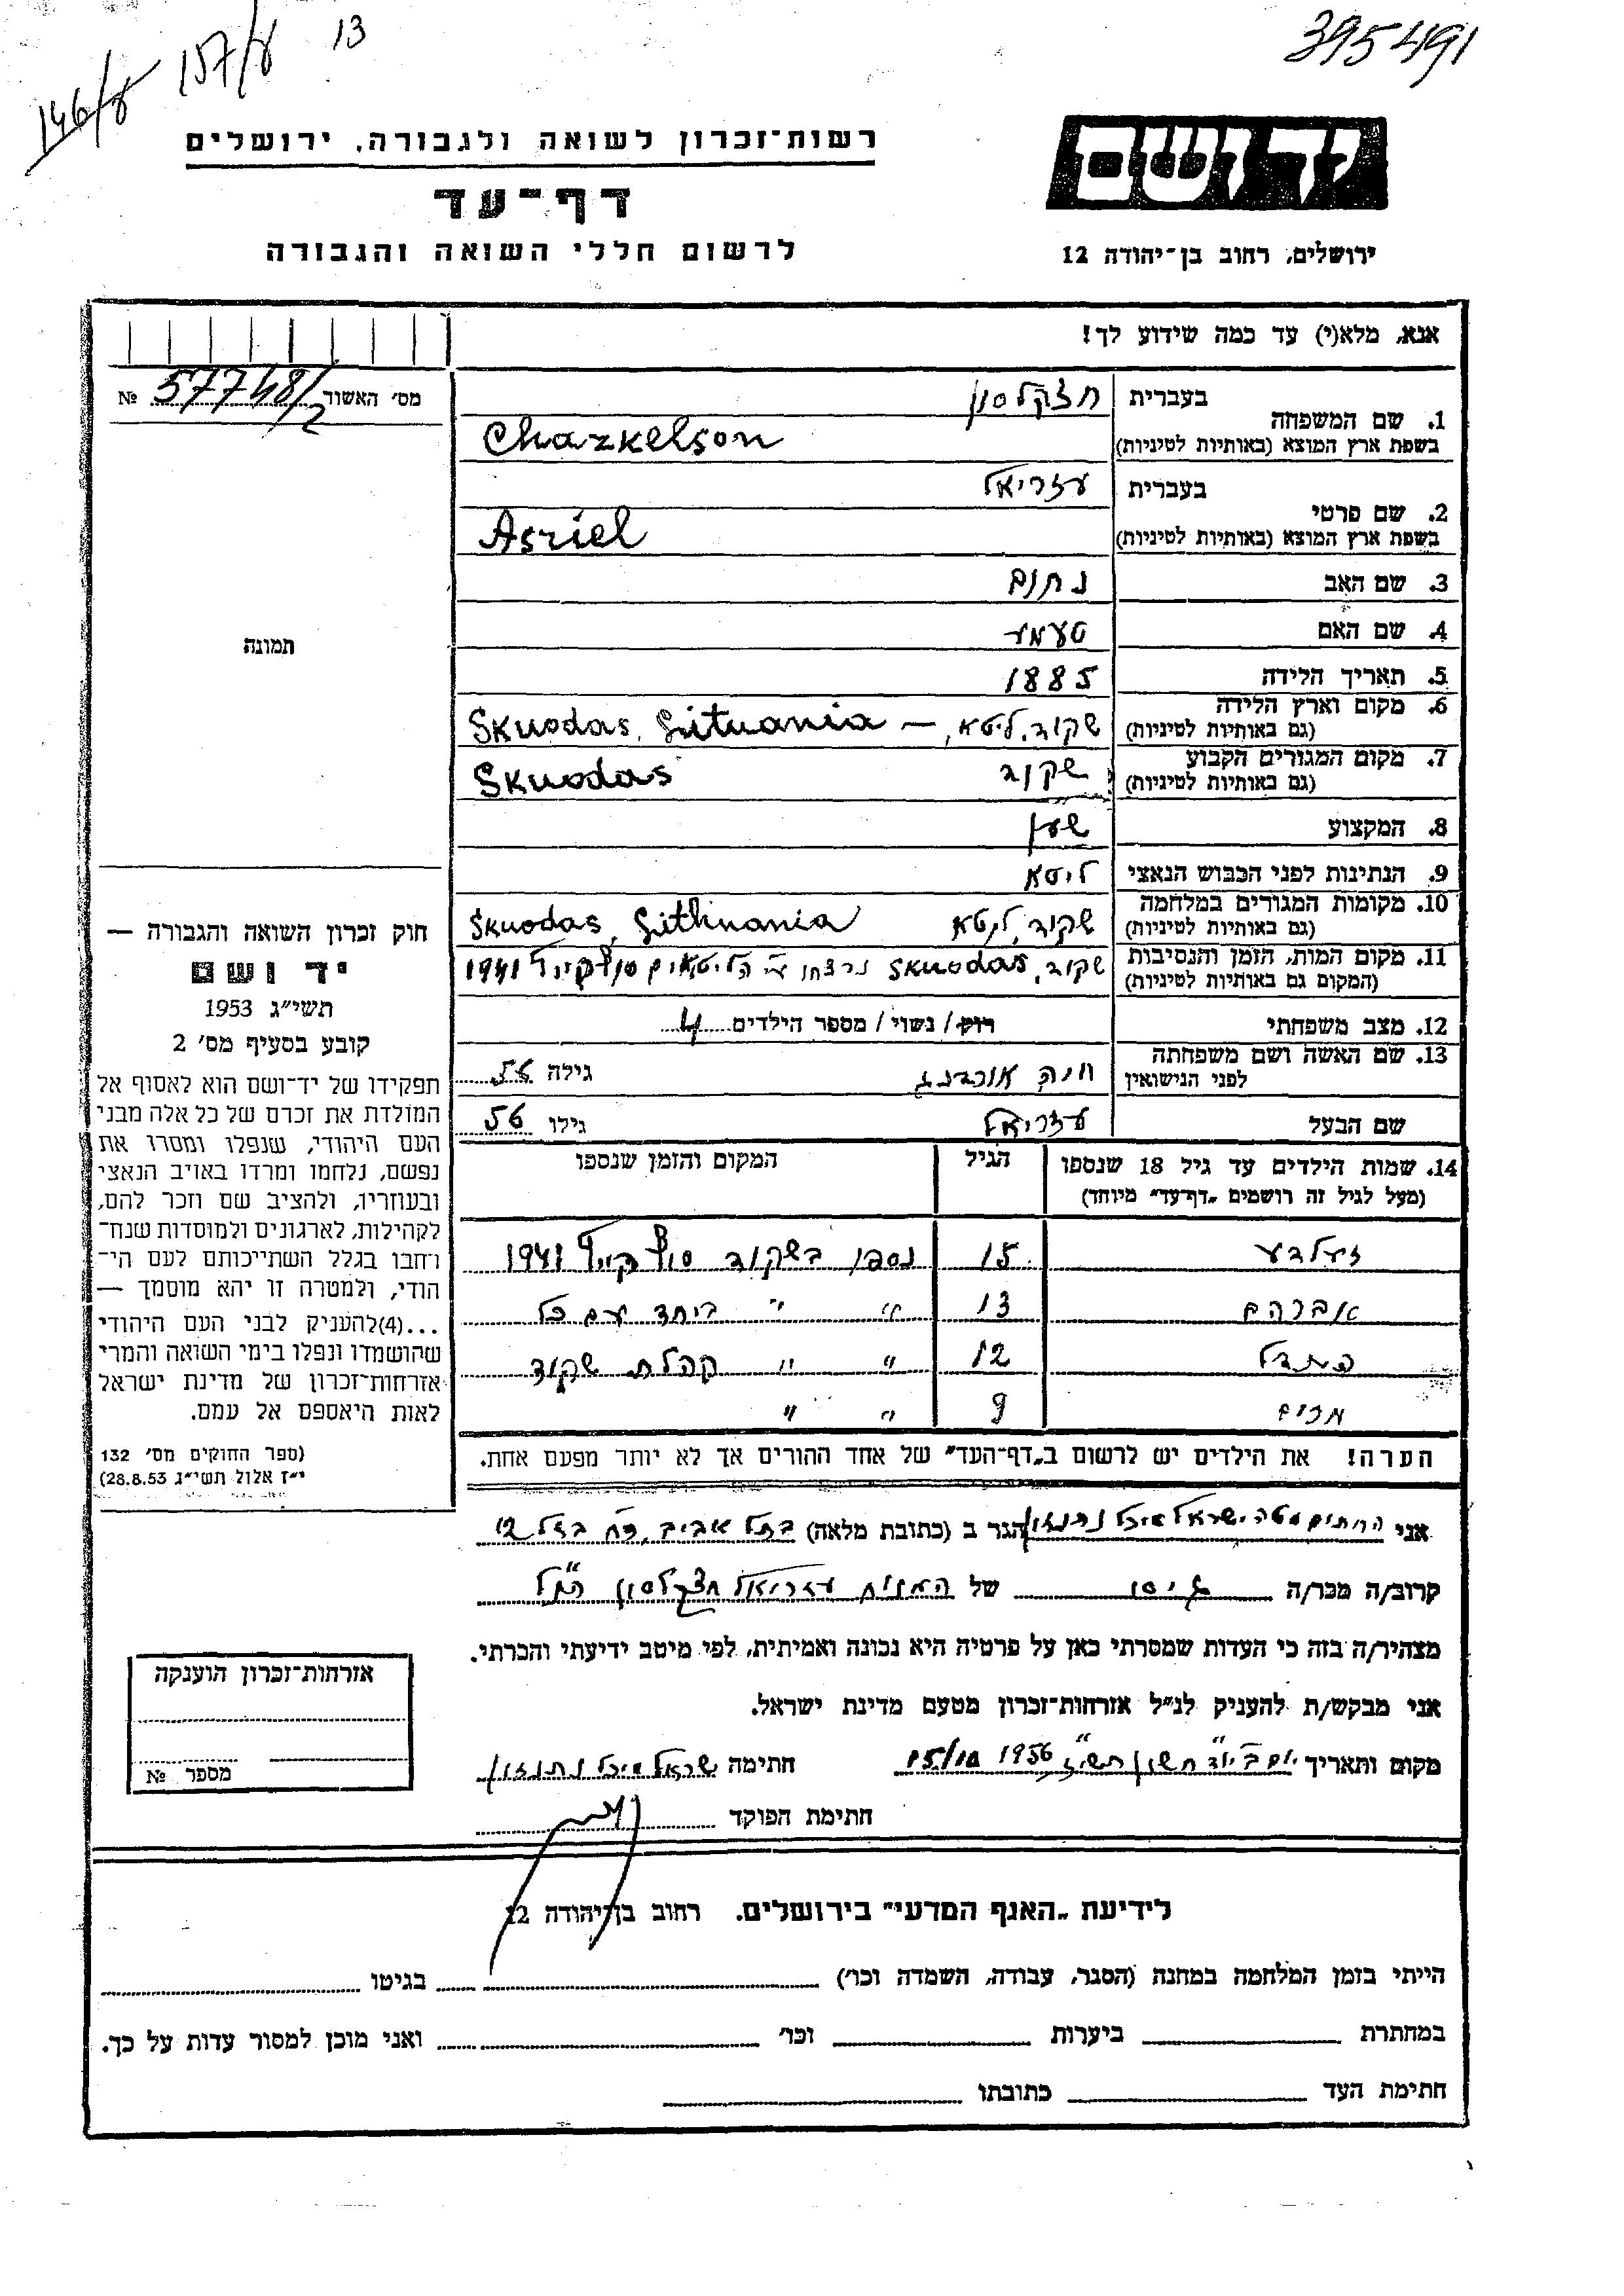 146/ע 157/ע 13
395491
רשות־זכרון לשואה ולגבורה, ירושלים
דף־עד
לרשום חללי השואה והגבורה
יד ושם
ירושלים, רחוב בן־יהודה 12
אנא, מלא(י) עד כמה שידוע לך!
מס׳ האשור 57748/2 №
תמונה
1. שם המשפחה בעברית חצקלסון
בשפת ארץ המוצא (באותיות לטיניות) Chazkelson
2. שם פרטי בעברית עזריאל
בשפת ארץ המוצא (באותיות לטיניות) Asriel
3. שם האב נחום
4. שם האם טעמע
5. תאריך הלידה 1885
6. מקום וארץ הלידה שקוד, ליטא, — Skuodas, Lituania
(גם באותיות לטיניות)
7. מקום המגורים הקבוע שקוד Skuodas
(גם באותיות לטיניות)
8. המקצוע שען
9. הנתינות לפני הכבוש הנאצי ליטא
10. מקומות המגורים במלחמה שקוד, ליטא Skuodas, Lithuania
(גם באותיות לטיניות)
11. מקום המות, הזמן והנסיבות שקוד, Skuodas נרצחו ע״י הליטאים סוף קיץ 1941
(המקום גם באותיות לטיניות)
12. מצב משפחתי רוק/ נשוי/ מספר הילדים 4
13. שם האשה ושם משפחתה חיה גילה 56
לפני הנישואין
שם הבעל עזריאל גילו 56
14. שמות הילדים עד גיל 18 שנספו הגיל המקום והזמן שנספו
(מעל לגיל זה רושמים „דף־עד״ מיוחד)
זעלדע 15 נספו בשקוד סוף קיץ 1941
אברהם 13 ״ ״ ביחד עם כל
12 ״ ״ קהלת שקוד
מרים 9 ״ ״
הערה! את הילדים יש לרשום ב„דף־העד״ של אחד ההורים אך לא יותר מפעם אחת.
חוק זכרון השואה והגבורה —
יד ושם
תשי״ג 1953
קובע בסעיף מס׳ 2
תפקידו של יד־ושם הוא לאסוף אל
המולדת את זכרם של כל אלה מבני
העם היהודי, שנפלו ומסרו את
נפשם, נלחמו ומרדו באויב הנאצי
ובעוזריו, ולהציב שם וזכר להם,
לקהילות, לארגונים ולמוסדות שנח־
רחבו בגלל השתייכותם לעם הי־
הודי, ולמטרה זו יהא מוסמך —
...(4)להעניק לבני העם היהודי
שהושמדו ונפלו בימי השואה והמרי
אזרחות־זכרון של מדינת ישראל
לאות היאספם אל עמם.
(ספר החוקים מס׳ 132
י״ז אלול תשי״ג 28.8.53)
אני החתום מטה ישראל איזל נתנזון הגר ב (כתובת מלאה) בתל אביב, רח׳ בזל 12
קרוב/ה מכר/ה גיסו של המנוח עזריאל חצקלסון הנ״ל
מצהיר/ה בזה כי העדות שמסרתי כאן על פרטיה היא נכונה ואמיתית, לפי מיטב ידיעתי והכרתי.
אני מבקש/ת להעניק לנ״ל אזרחות־זכרון מטעם מדינת ישראל.
מקום ותאריך יום ב׳ י״ד חשון תשי״ז 15/10 1956 חתימה ישראל איזל נתנזון
חתימת הפוקד
אזרחות־זכרון הוענקה
מספר №
לידיעת „האגף המדעי״ בירושלים. רחוב בן־יהודה 12
הייתי בזמן המלחמה במחנה (הסגר, עבודה, השמדה וכו׳) בגיטו
במחתרת ביערות וכו׳ ואני מוכן למסור עדות על כך.
חתימת העד כתובתו